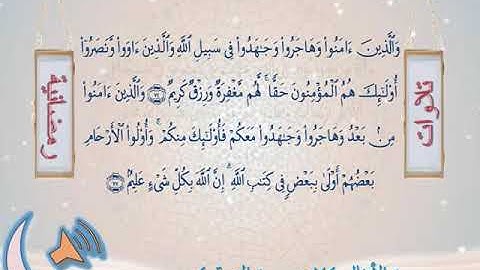 وَالَّذِينَ ءَامَنُوا۟ وَهَاجَرُوا۟ وَجَٰهَدُوا۟ فِى سَبِيلِ اللَّهِ وَالَّذِينَ ءَاوَوا۟ وَّنَصَرُوٓا۟
أُو۟لَٰٓئِكَ هُمُ الْمُؤْمِنُونَ حَقًّا ۚ لَّهُم مَّغْفِرَةٌ وَرِزْقٌ كَرِيمٌ ٧٤ وَالَّذِينَ ءَامَنُوا۟
مِنۢ بَعْدُ وَهَاجَرُوا۟ وَجَٰهَدُوا۟ مَعَكُمْ فَأُو۟لَٰٓئِكَ مِنكُمْ ۚ وَأُو۟لُوا۟ الْأَرْحَامِ
بَعْضُهُمْ أَوْلَىٰ بِبَعْضٍ فِى كِتَٰبِ اللَّهِ ۗ إِنَّ اللَّهَ بِكُلِّ شَىْءٍ عَلِيمٌۢ ٧٥
تلاوات
رمضانية